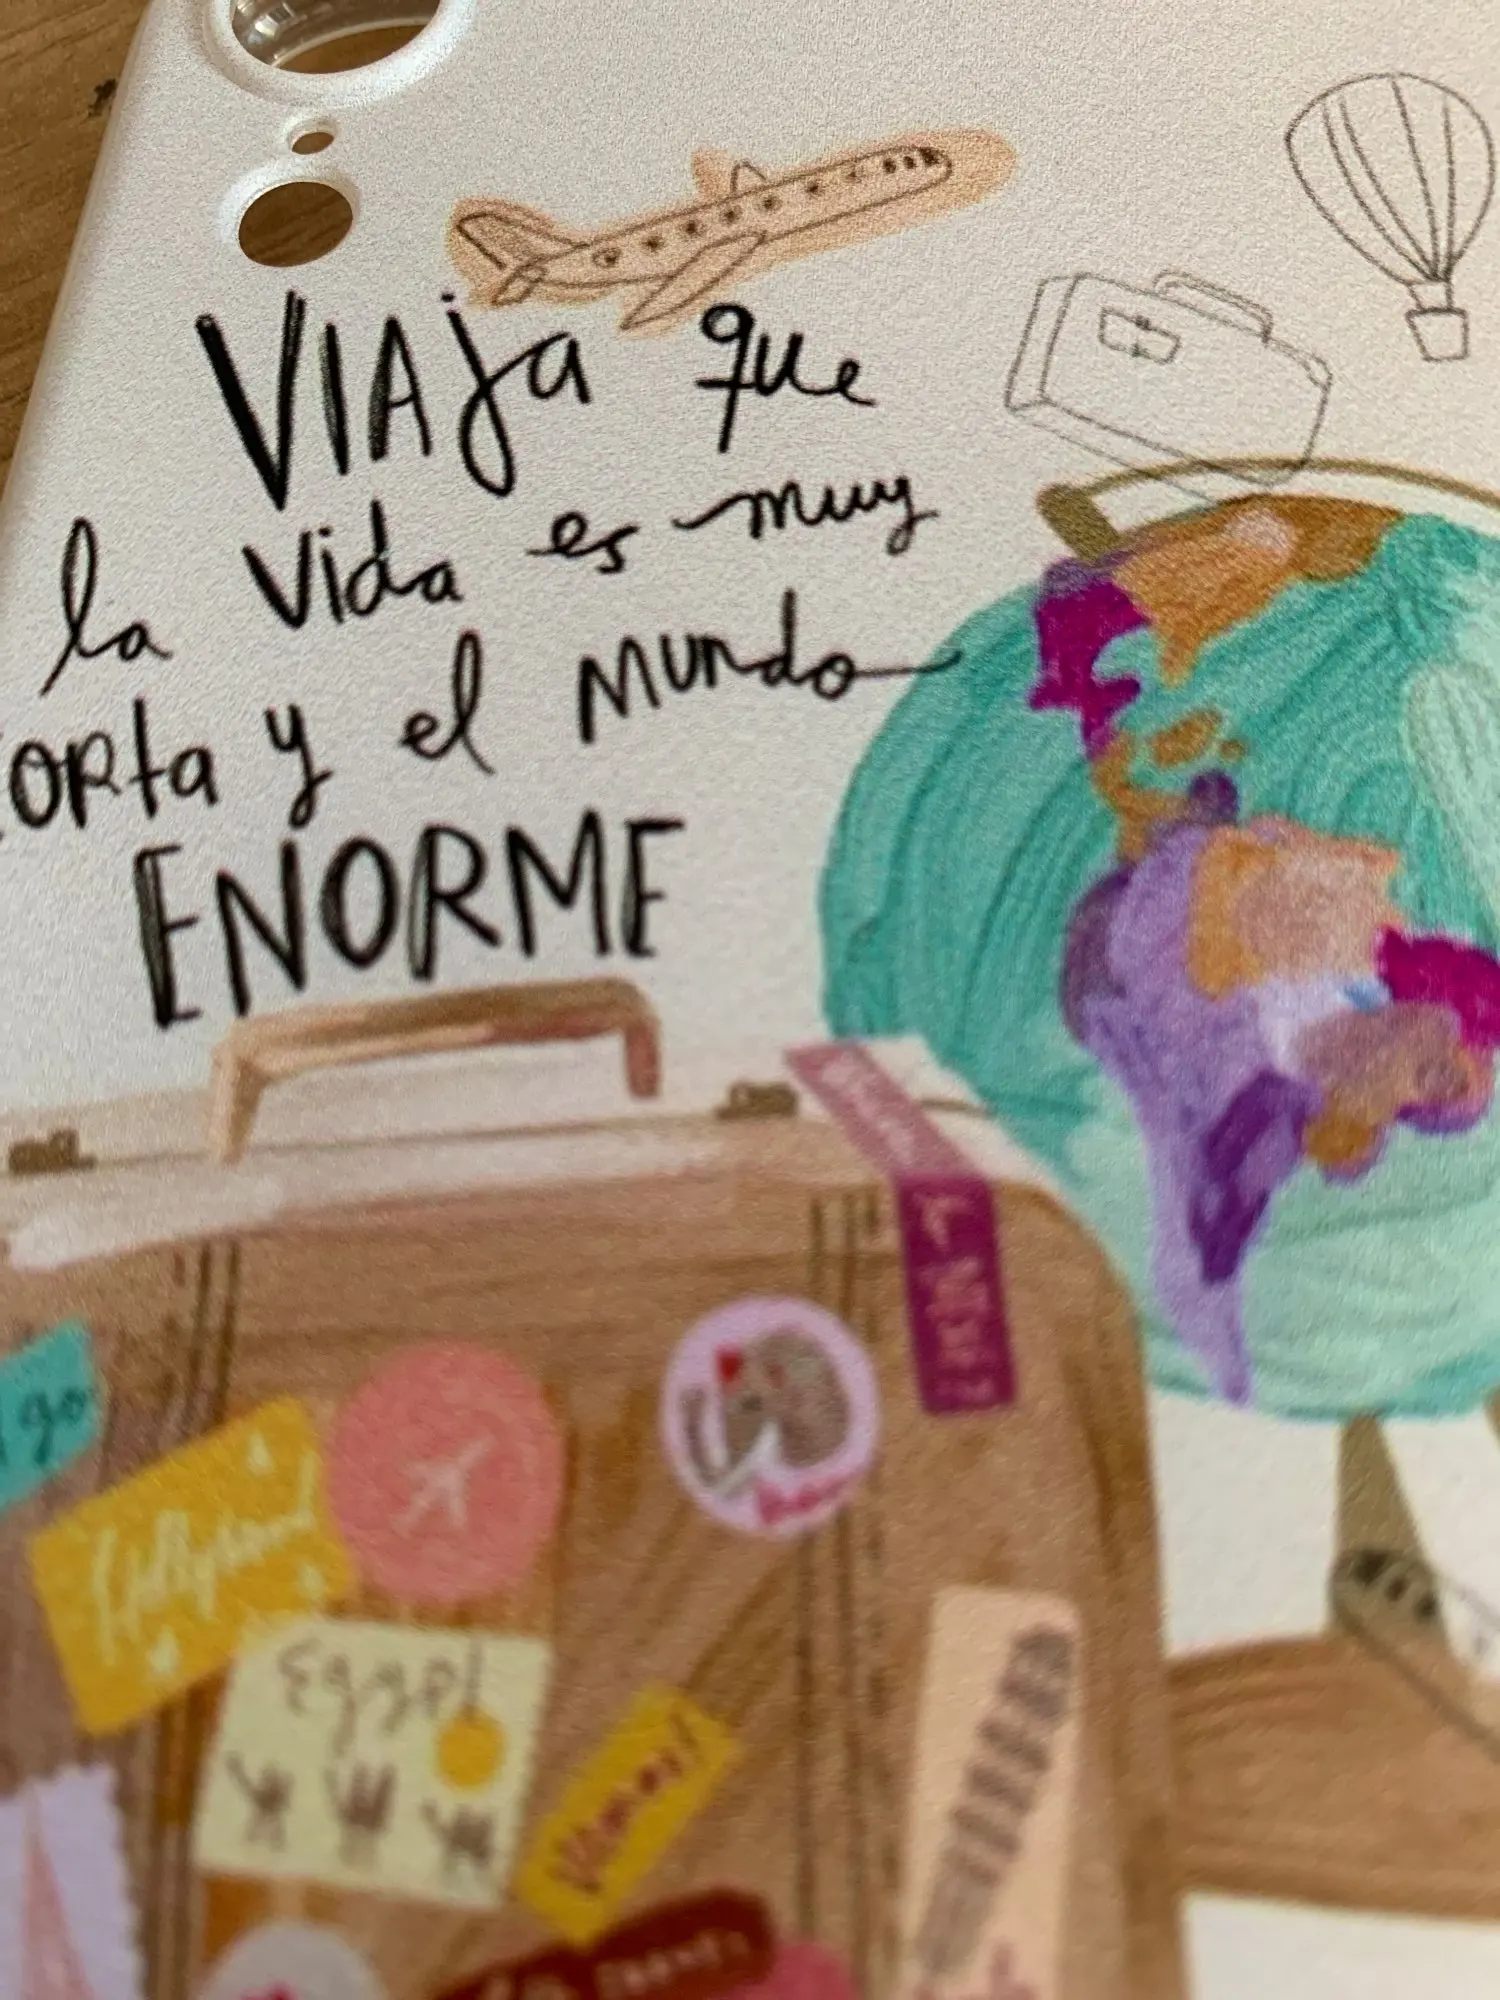 VIAja que
la vida es muy
corta y el mundo
ENORME
go
Hollywood
Egypt